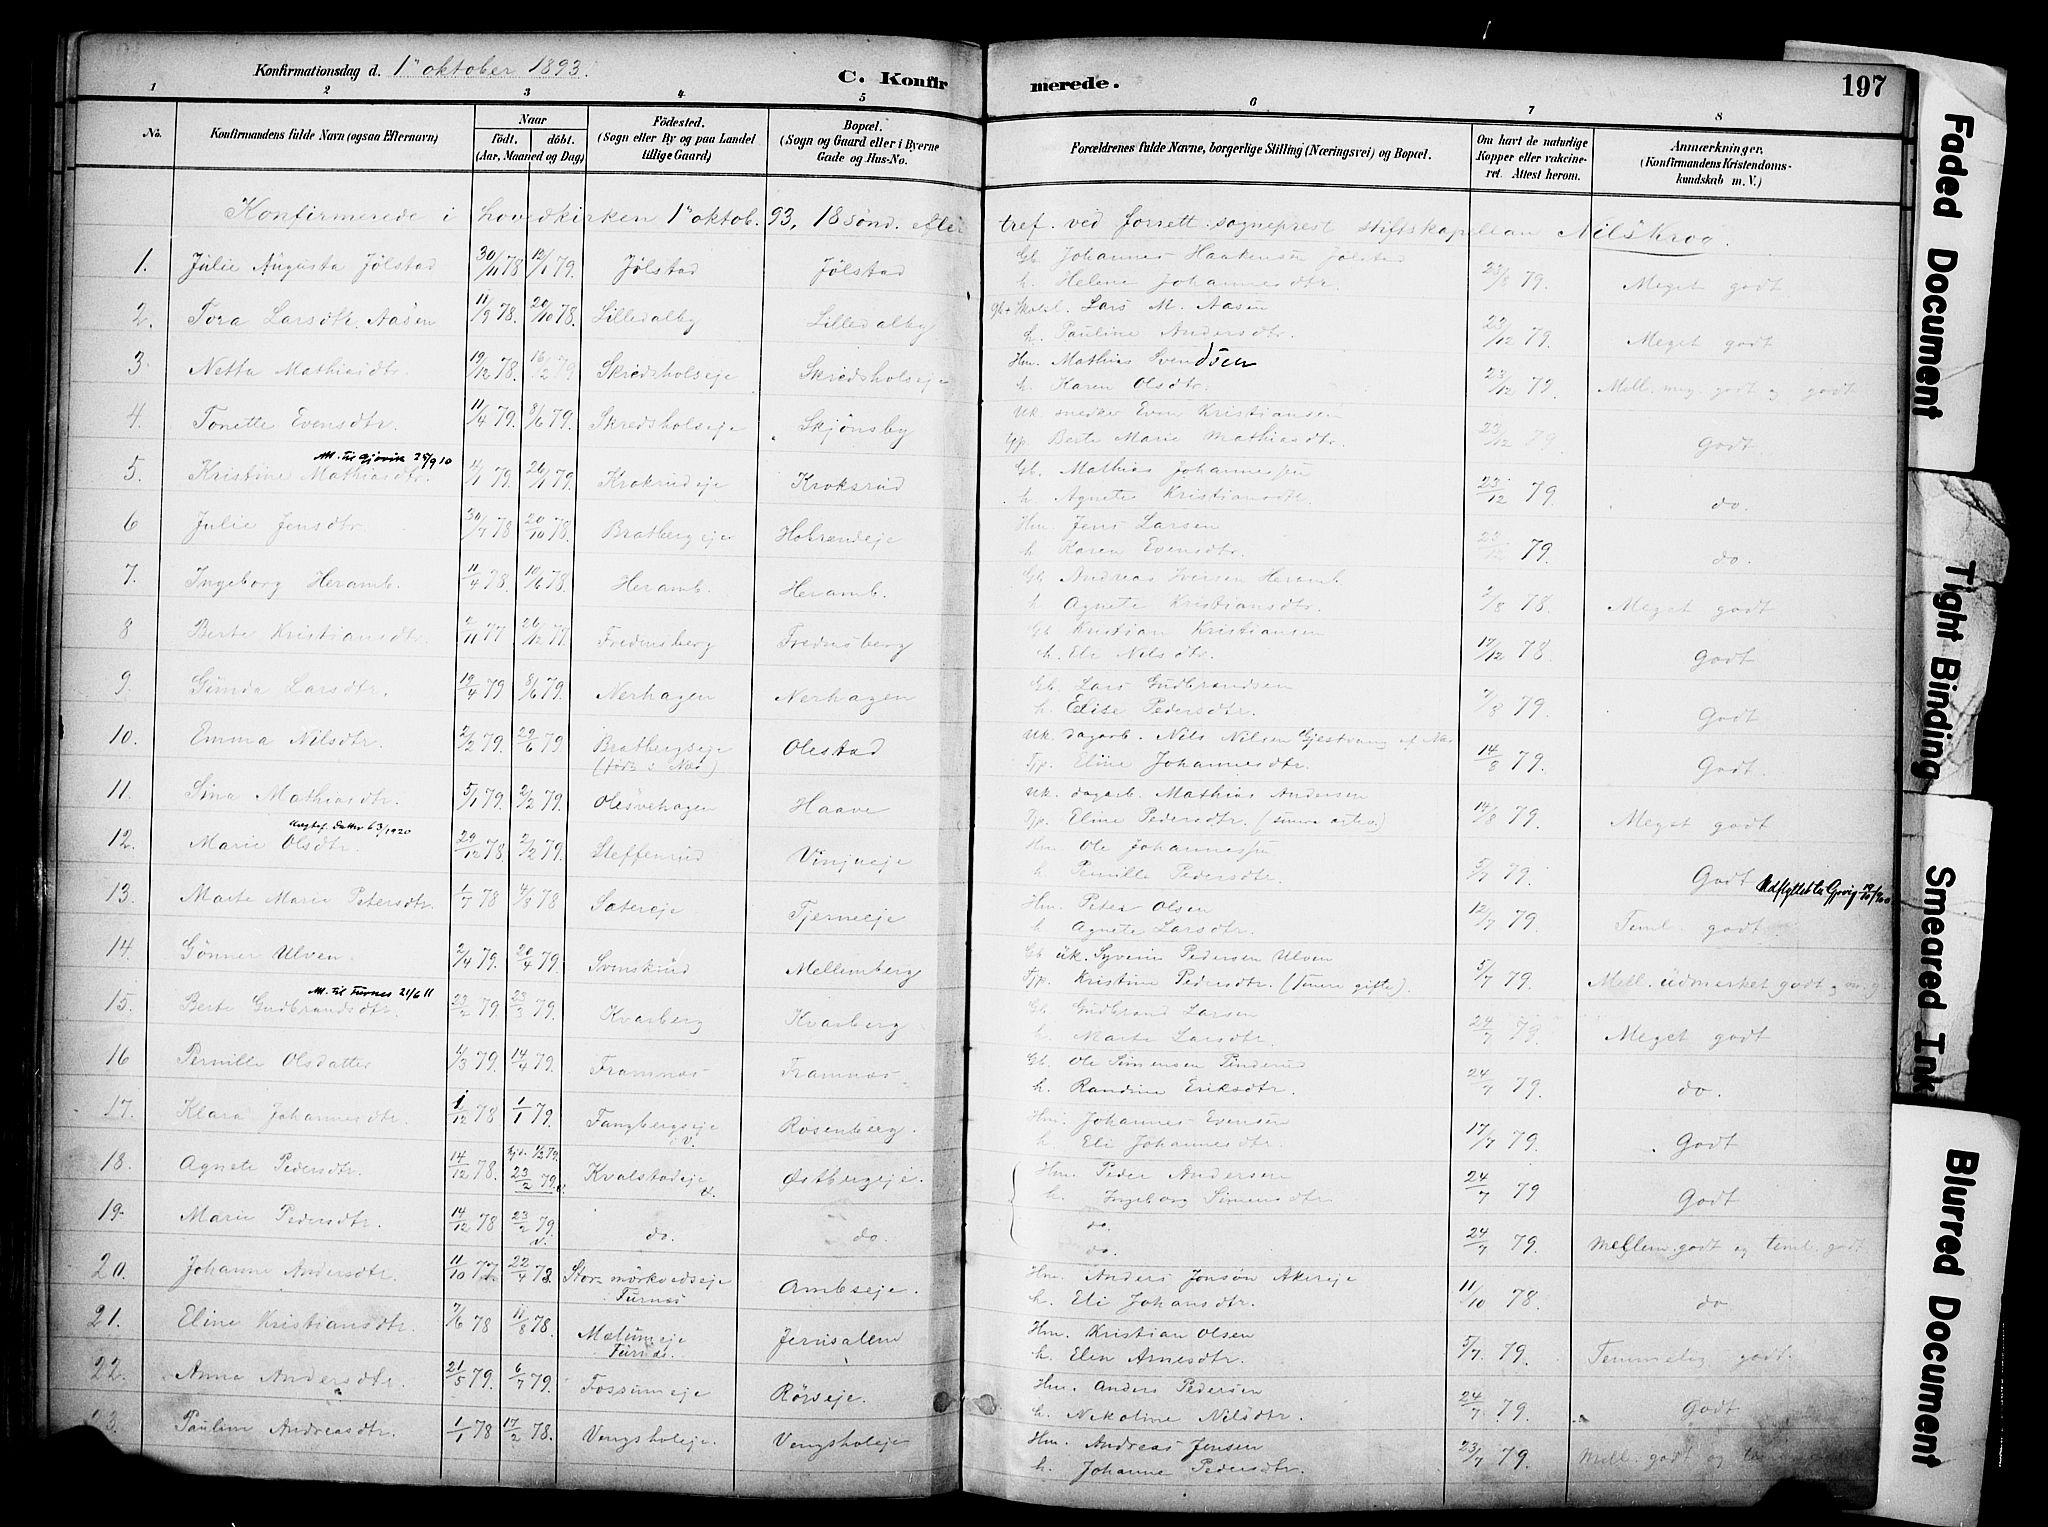 Konfirmationsdag d. 1ste oktober 1893.
C. Konfirmerede.
197
1 2 3 4 5 6 7 8
No.
Konfirmandens fulde Navn (ogsaa Efternavn)
Naar
født, døbt.
(Aar, Maaned og Dag)
Fødested.
(Sogn eller By og paa Landet
tillige Gaard)
Bopæl.
(Sogn og Gaard eller i Byerne
Gade og Hus-No.
Forældrenes fulde Navne, borgerlige Stilling (Næringsvei) og Bopæl.
Om havt de naturlige
Kopper eller vakcine-
ret. Attest herom.
Anmærkninger,
(Konfirmandens Kristendoms-
kundskab m. V.)
Konfirmerede i hovedkirken 1ste oktob. 93, 18 sønd. efter tref. ved forrett. sogneprest stiftskapellan Nils Krog.
1. Julie Augusta Jølstad 30/11 78 12/1 79. Jølstad Jølstad Gb. Johannes Haakensen Jølstad
h. Helene Johannesdtr. 23/8 79. Meget godt
2. Tora Larsdtr. Aasen 11/9 78. 20/10 78. Lilledalby Lilledalby Gb+ Skolel. Lars M. Aasen
h. Pauline Andersdtr. 23/12 79. Meget godt
3. Netta Mathiasdtr. 19/12 78. 16/2 79 Skredsholseje Skredsholseje Hm. Mathias Svendsen
h. Karen Olsdtr. 23/12 79. Mell. meg. godt og godt
4. Tonette Evensdtr. 11/4 79. 8/6 79. Skredsholseje Skjønsby Uk. snedker Even Kristiansen
Tjp. Berte Marie Mathiasdtr. 23/12 79 Godt.
Att. til Gjøvik 29/9 10
5 Kristine Mathiasdtr. 4/1 79. 26/1 79. Kroksrudeje Kroksrud Gb. Mathias Johannessen
h. Agnete Kristiansdtr. 23/12 79 do.
6 Julie Jensdtr. 30/7 78 20/10 78. Bratbergseje Hobrændeje Hm. Jens Larsen
h. Karen Evensdtr. 23/12 79 do.
7. Ingeborg Heramb. 11/4 78. 10/6 78. Heramb. Heramb. Gb Andreas Iversen Heramb
h. Agnete Kristiansdtr. 2/8 78. Meget godt
8 Berte Kristiansdtr. 2/11 77 26/12 77. Fredensberg Fredensberg Gb. Kristian Kristiansen
h. Eli Nilsdtr. 17/12 78. Godt
9. Gunda Larsdtr. 19/4 79 8/6 79. Nerhagen Nerhagen Gb. Lars Gudbrandsen
h. Elise Pedersdtr. 7/8 79. Godt
10. Emma Nilsdtr. 2/2 79. 29/6 79 Bratbergseje
(født i Næs) Olestad Uk. dagarb. Nils Nilsen Gjestvang af Næs
Tjp. Eline Johannesdtr. 14/8 79. Godt.
11. Sina Mathiasdtr. 5/1 79. 2/2 79. Olesvehagen Haave Uk. dagarb. Mathias Andersen
Tjp. Eline Pedersdtr. 14/8 79. Meget godt
datter 6 3/1920
12. Marie Olsdtr. 29/12 78 2/2 79. Steffensrud Vinjueje Hm Ole Johannessen
h. Pernille Pedersdtr. 5/7 79. Godt
Udflyttet til Gjøvig
13. Marte Marie Petersdtr. 1/7 78 4/8 78 Sætereje Tjerneeje Hm. Peter Olsen
h. Agnete Larsdtr. 12/7 79 Teml. godt
14. Gønner Ulven 2/4 79. 20/4 79. Svenskrud Mellemberg Gb uk. Syverin Pedersen Ulven
Tjp. Kristine Pedersdtr. (senere gifte). 5/7 79. Mell. udmerket godt og m. g.
Att. til Furnes 21/6 11
15. Berte Gudbrandsdtr. 22/2 79. 23/3 79. Kvarberg Kvarberg Gb. Gudbrand Larsen
h. Marte Larsdtr. 24/7 79 Meget godt
16 Pernille Olsdatter 6/3 79. 14/4 79. Framnæs Framnæs Gb. Ole Simensen Pinderud
h. Randine Eriksdtr. 24/7 79. do.
17. Klara Johannesdtr. 1/12 78 1/1 79. Fangbergseje v. Rosenberg. Hm. Johannes Evensen
h. Eli Johannesdtr. 17/7 79. Godt
18. Agnete Pedersdtr. 14/12 78. hjd. 1/2 79. 23/2 79. Kvalstadeje Østbergeje. Hm. Peder Andersen
h. Ingeborg Simensdtr. 24/7 79 Godt
19. Marie Pedersdtr. 14/12 78 23/2 79. do. do. do.
do. 24/7 79. Mellem godt og teml. godt
20. Johanne Andersdtr. 11/10 77 22/4 78. Stor-mørkvedseje
Furnes Ambseje. Hm. Anders Jonsøn Akereje
h. Eli Johansdtr. 11/10 78. do
21. Eline Kristiansdtr. 7/6 78 11/8 78. Mælumeje
Furnes. Jerusalem Hm. Kristian Olsen
h. Elen Arnesdtr. 5/7. 79. Temmelig godt
22. Anna Andersdtr. 21/5 79. 6/7 79. Fossumeje Rørseje. Hm. Anders Pedersen
h. Nikoline Nilsdtr. 24/7 79. Godt
23. Pauline Andreasdtr. 1/1 78 17/2 78. Vengsholeje. Vengsholeje Hm. Andreas Jensen
h. Johanne Pedersdtr. 23/7 79. Mell. godt og
Faded Document
Tight Binding
Smeared Ink
Blurred Document